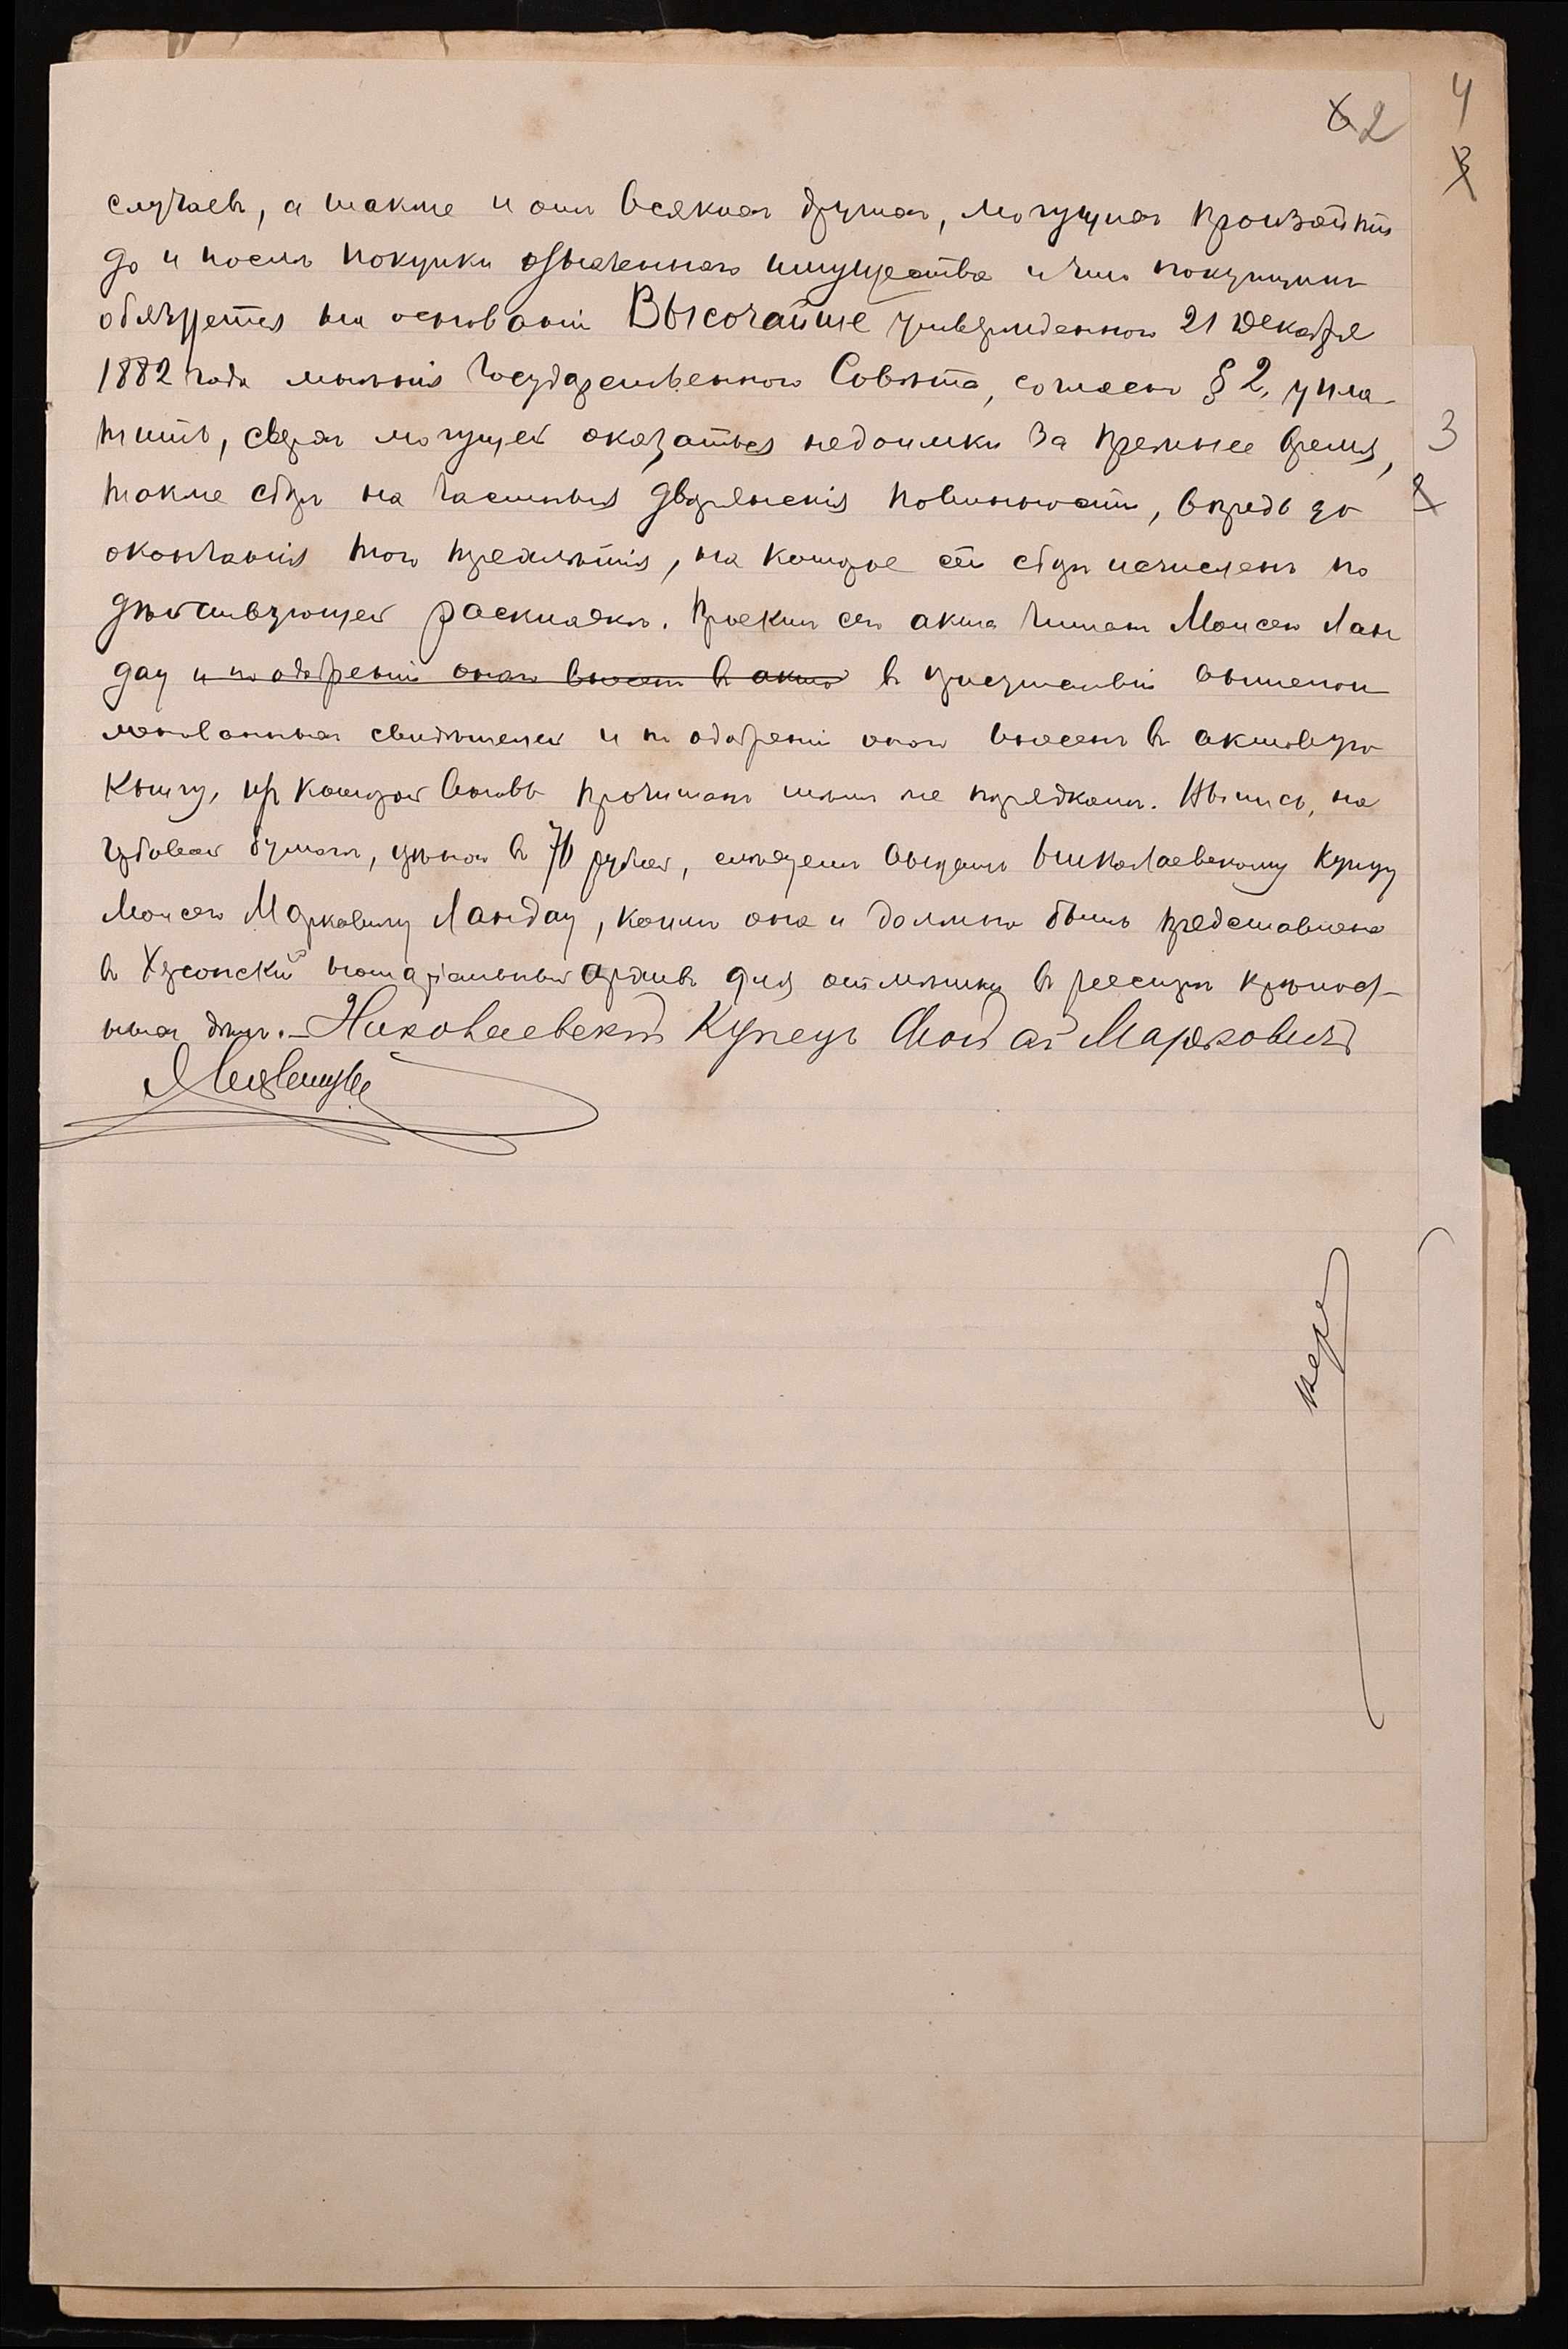 2
4
случаевъ, а также и отъ всякихъ другихъ, могущихъ произойти
до и послѣ покупки означеннаго имущества и что покупщикъ
обязуется на основаніи Высочайше утвержденнаго 21 Декабря
1882 года мнѣнія Государственнаго Совѣта, согласно § 2, упла-
тить, сверхъ могущей оказаться недоимки за прежнее время,
3
также сборъ на частныя дворянскія повинности, впредь до
окончанія того трехлѣтія, на которое сей сборъ исчисленъ по
дѣйствующей раскладкѣ. Проектъ сего акта читанъ Моисею Лан
дау и по одобреніи онаго внесенъ въ актов въ присутствіи вышепои
менованныхъ свидѣтелей и по одобреніи онаго внесенъ въ актовую
книгу, изъ которой вновь прочитанъ тѣмъ же порядкомъ. Выпись, на
гербовой бумагѣ, цѣною въ 70 рублей, слѣдуетъ выдать Николаевскому купцу
Моисею Марковичу Ландау, коимъ она и должна быть представлена
въ Херсонскій нотаріальный архивъ для отмѣтки въ реестрѣ крѣпост-
ныхъ дѣлъ. – Николаевскій Купецъ Мойсей Марковичъ